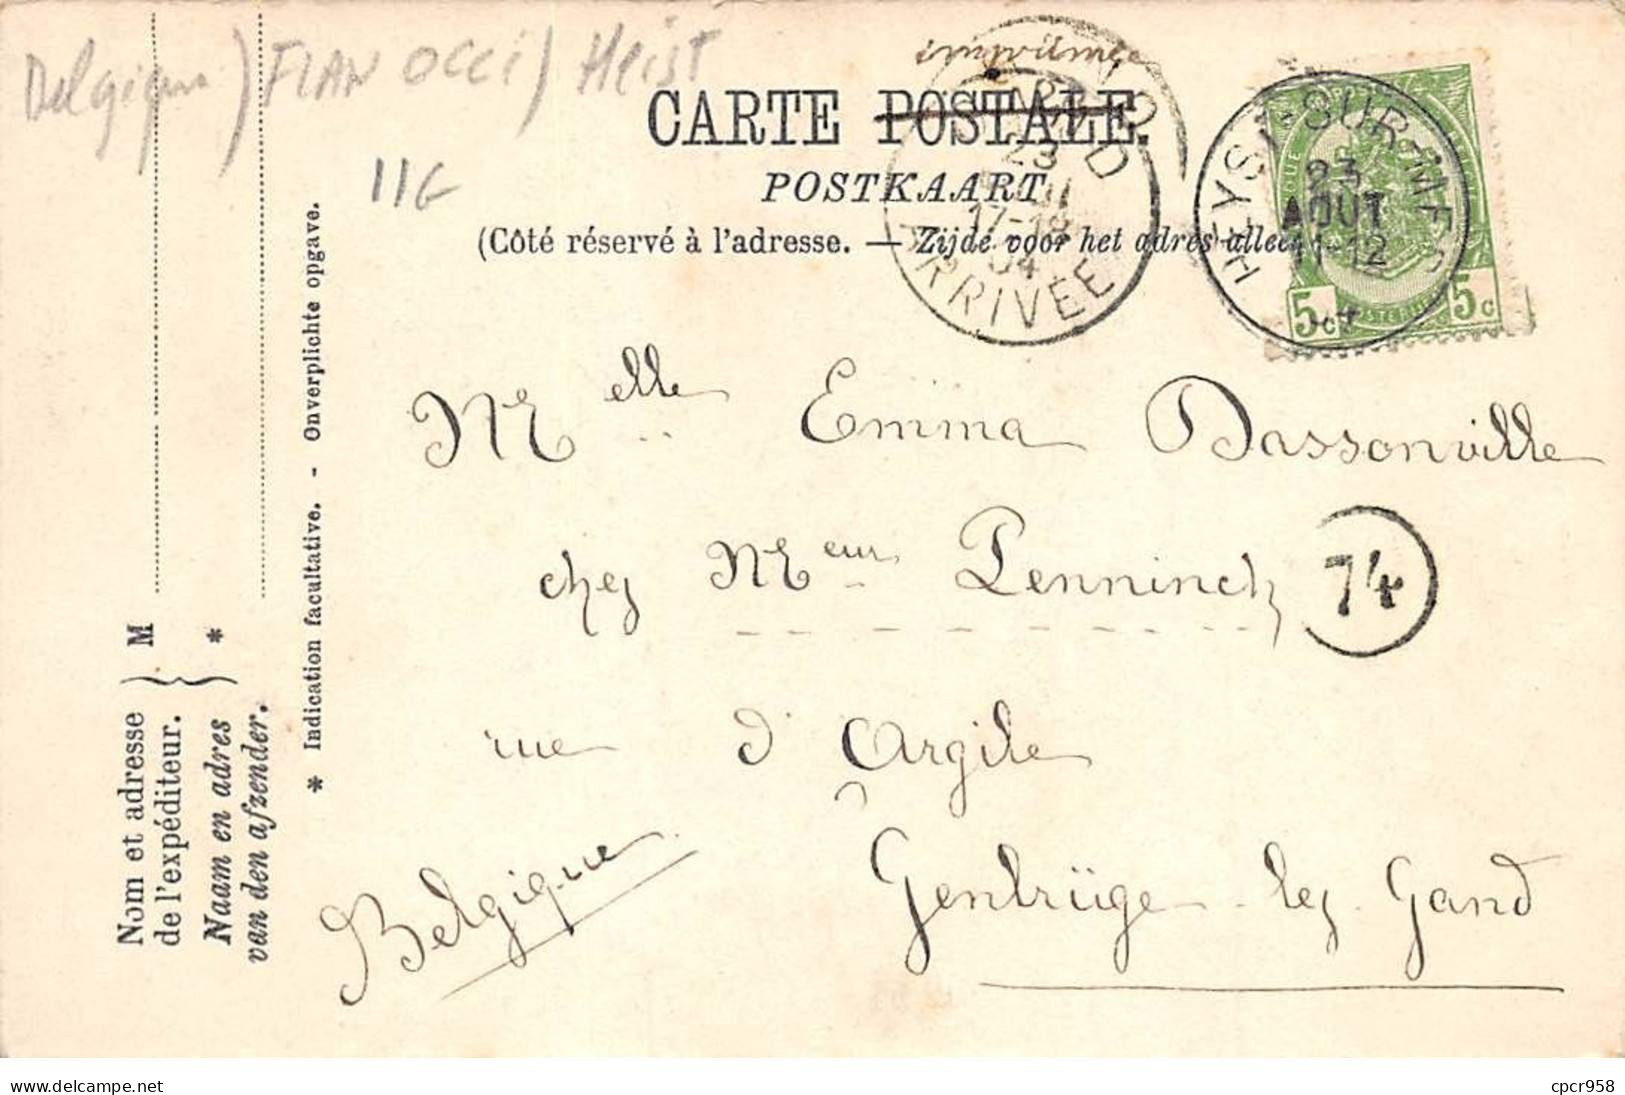 Belgique) FLAN OCCI) Heist
11G
imprimée
CARTE POSTALE.
POSTKAART
(Côté réservé à l'adresse. — Zijde voor het adres alleen
GAND
23
17-18
04
ARRIVÉE
HEYST-SUR-MER
23
AOUT
11-12
5c 5c
Melle Emma Dassonville
chez Meur Penninck
74
rue d'Argile
Gentbrüge-lez-Gand
Belgique
* Indication facultative. - Onverplichte opgave.
Nom et adresse
de l'expéditeur.
Naam en adres
van den afzender.
M
*
delcampe.net
cpcr958